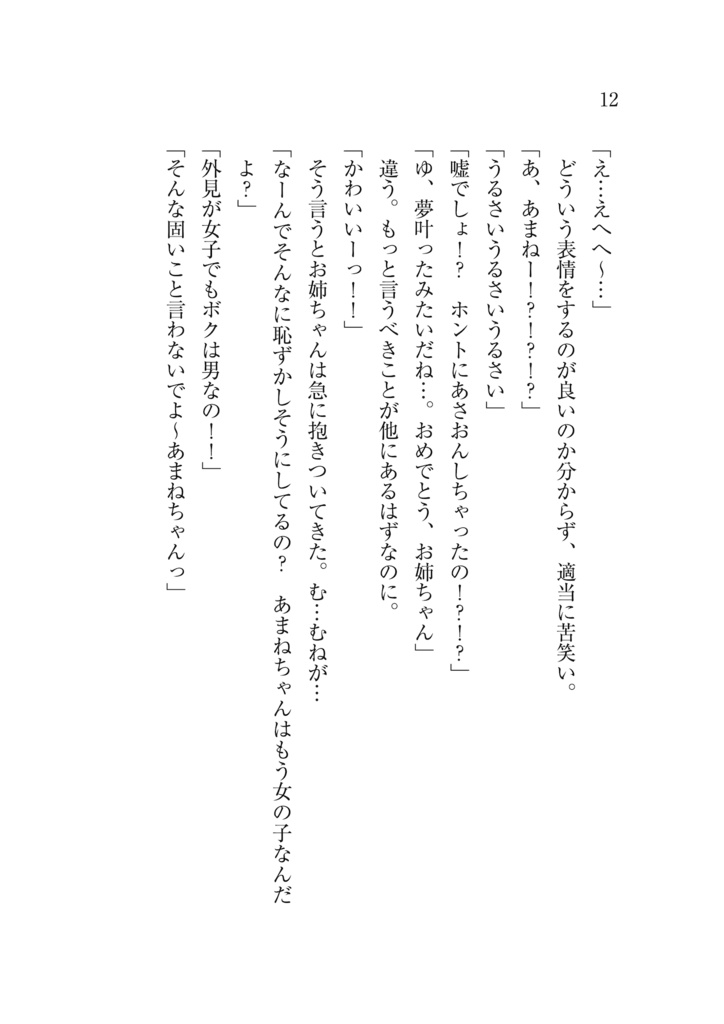 12
「え…えへへ～…」
　どういう表情をするのが良いのか分からず、適当に苦笑い。
「あ、あまねー！？！？！？」
「うるさいうるさいうるさい」
「嘘でしょ！？　ホントにあさおんしちゃったの！？！？」
「ゆ、夢叶ったみたいだね…。おめでとう、お姉ちゃん」
　違う。もっと言うべきことが他にあるはずなのに。
「かわいいーっ！！」
　そう言うとお姉ちゃんは急に抱きついてきた。む…むねが…
「なーんでそんなに恥ずかしそうにしてるの？　あまねちゃんはもう女の子なんだ
よ？」
「外見が女子でもボクは男なの！！」
「そんな固いこと言わないでよ～あまねちゃんっ」